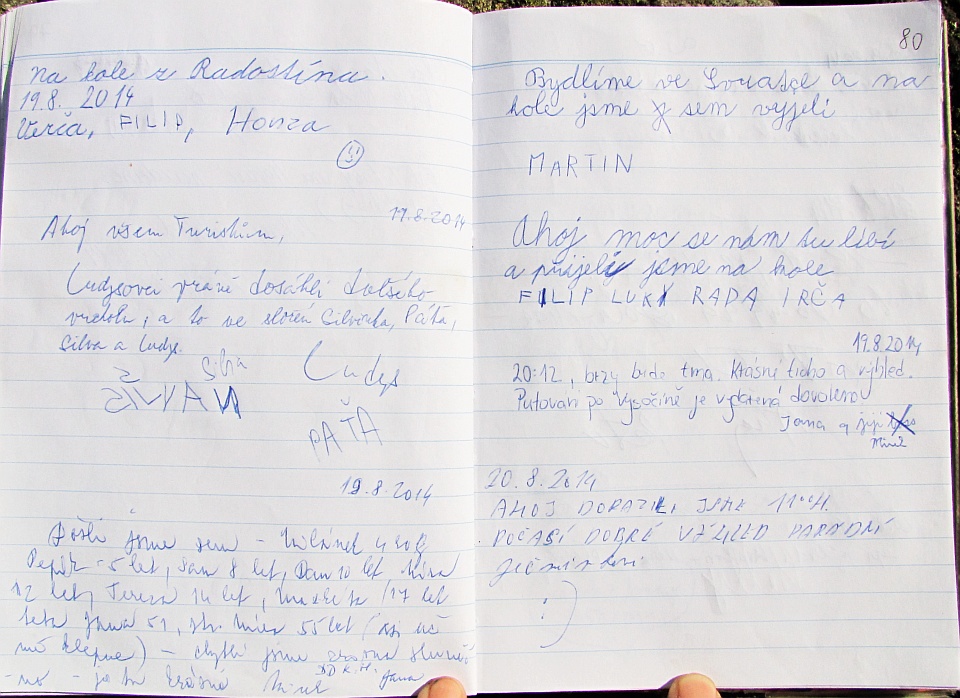 na kole z Radostína.
19.8. 2014
Verča, FILIP, Honza
19.8.2014
Ahoj všem Turistům,
Ludysovci právě dosáhli dalšího
vrcholu, a to ve složení Silvinka, Páťa,
Silva a Ludys.
Silva Ludys
PÁŤA
19.8.2014
Došli jsme sem - 4 roky
Pepík - 5 let, Sam 8 let, Dan 10 let,
12 let, Tereza 14 let, Markéta 17 let
teta Jana 51, 55 let (asi už
mě klepne) - chytli jsme
- je to krásné
DD K.H. Jana
80
Bydlíme ve a na
kole jsme sem vyjeli
MARTIN
Ahoj moc se nám tu líbí
a přijeli jsme na kole
FILIP LUKY RADA IRČA
19.8.2014
20:12, brzy bude tma. Krásné ticho a výhled.
Putování po Vysočině je vydařená dovolenou
Jana a její
20.8.2014
AHOJ DORAZILI JSME 11°°H.
POČASÍ DOBRÉ VÝHLED PARÁDNÍ
:)